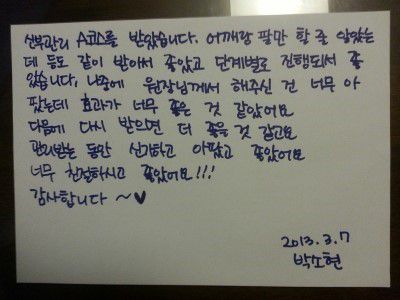 신부관리 A코스를 받았습니다. 어깨랑 팔만 할 줄 알았는
데 등도 같이 받아서 좋았고 단계별로 진행되서 좋
았습니다, 나중에 원장님께서 해주신 건 너무 아
팠는데 효과가 너무 좋은 것 같았어요
다음에 다시 받으면 더 좋을 것 같고요
관리받는 동안 신기하고 아팠고 좋았어요
너무 친절하시고 좋았어요!!!
감사합니다 ~♥
2013. 3. 7
박소현